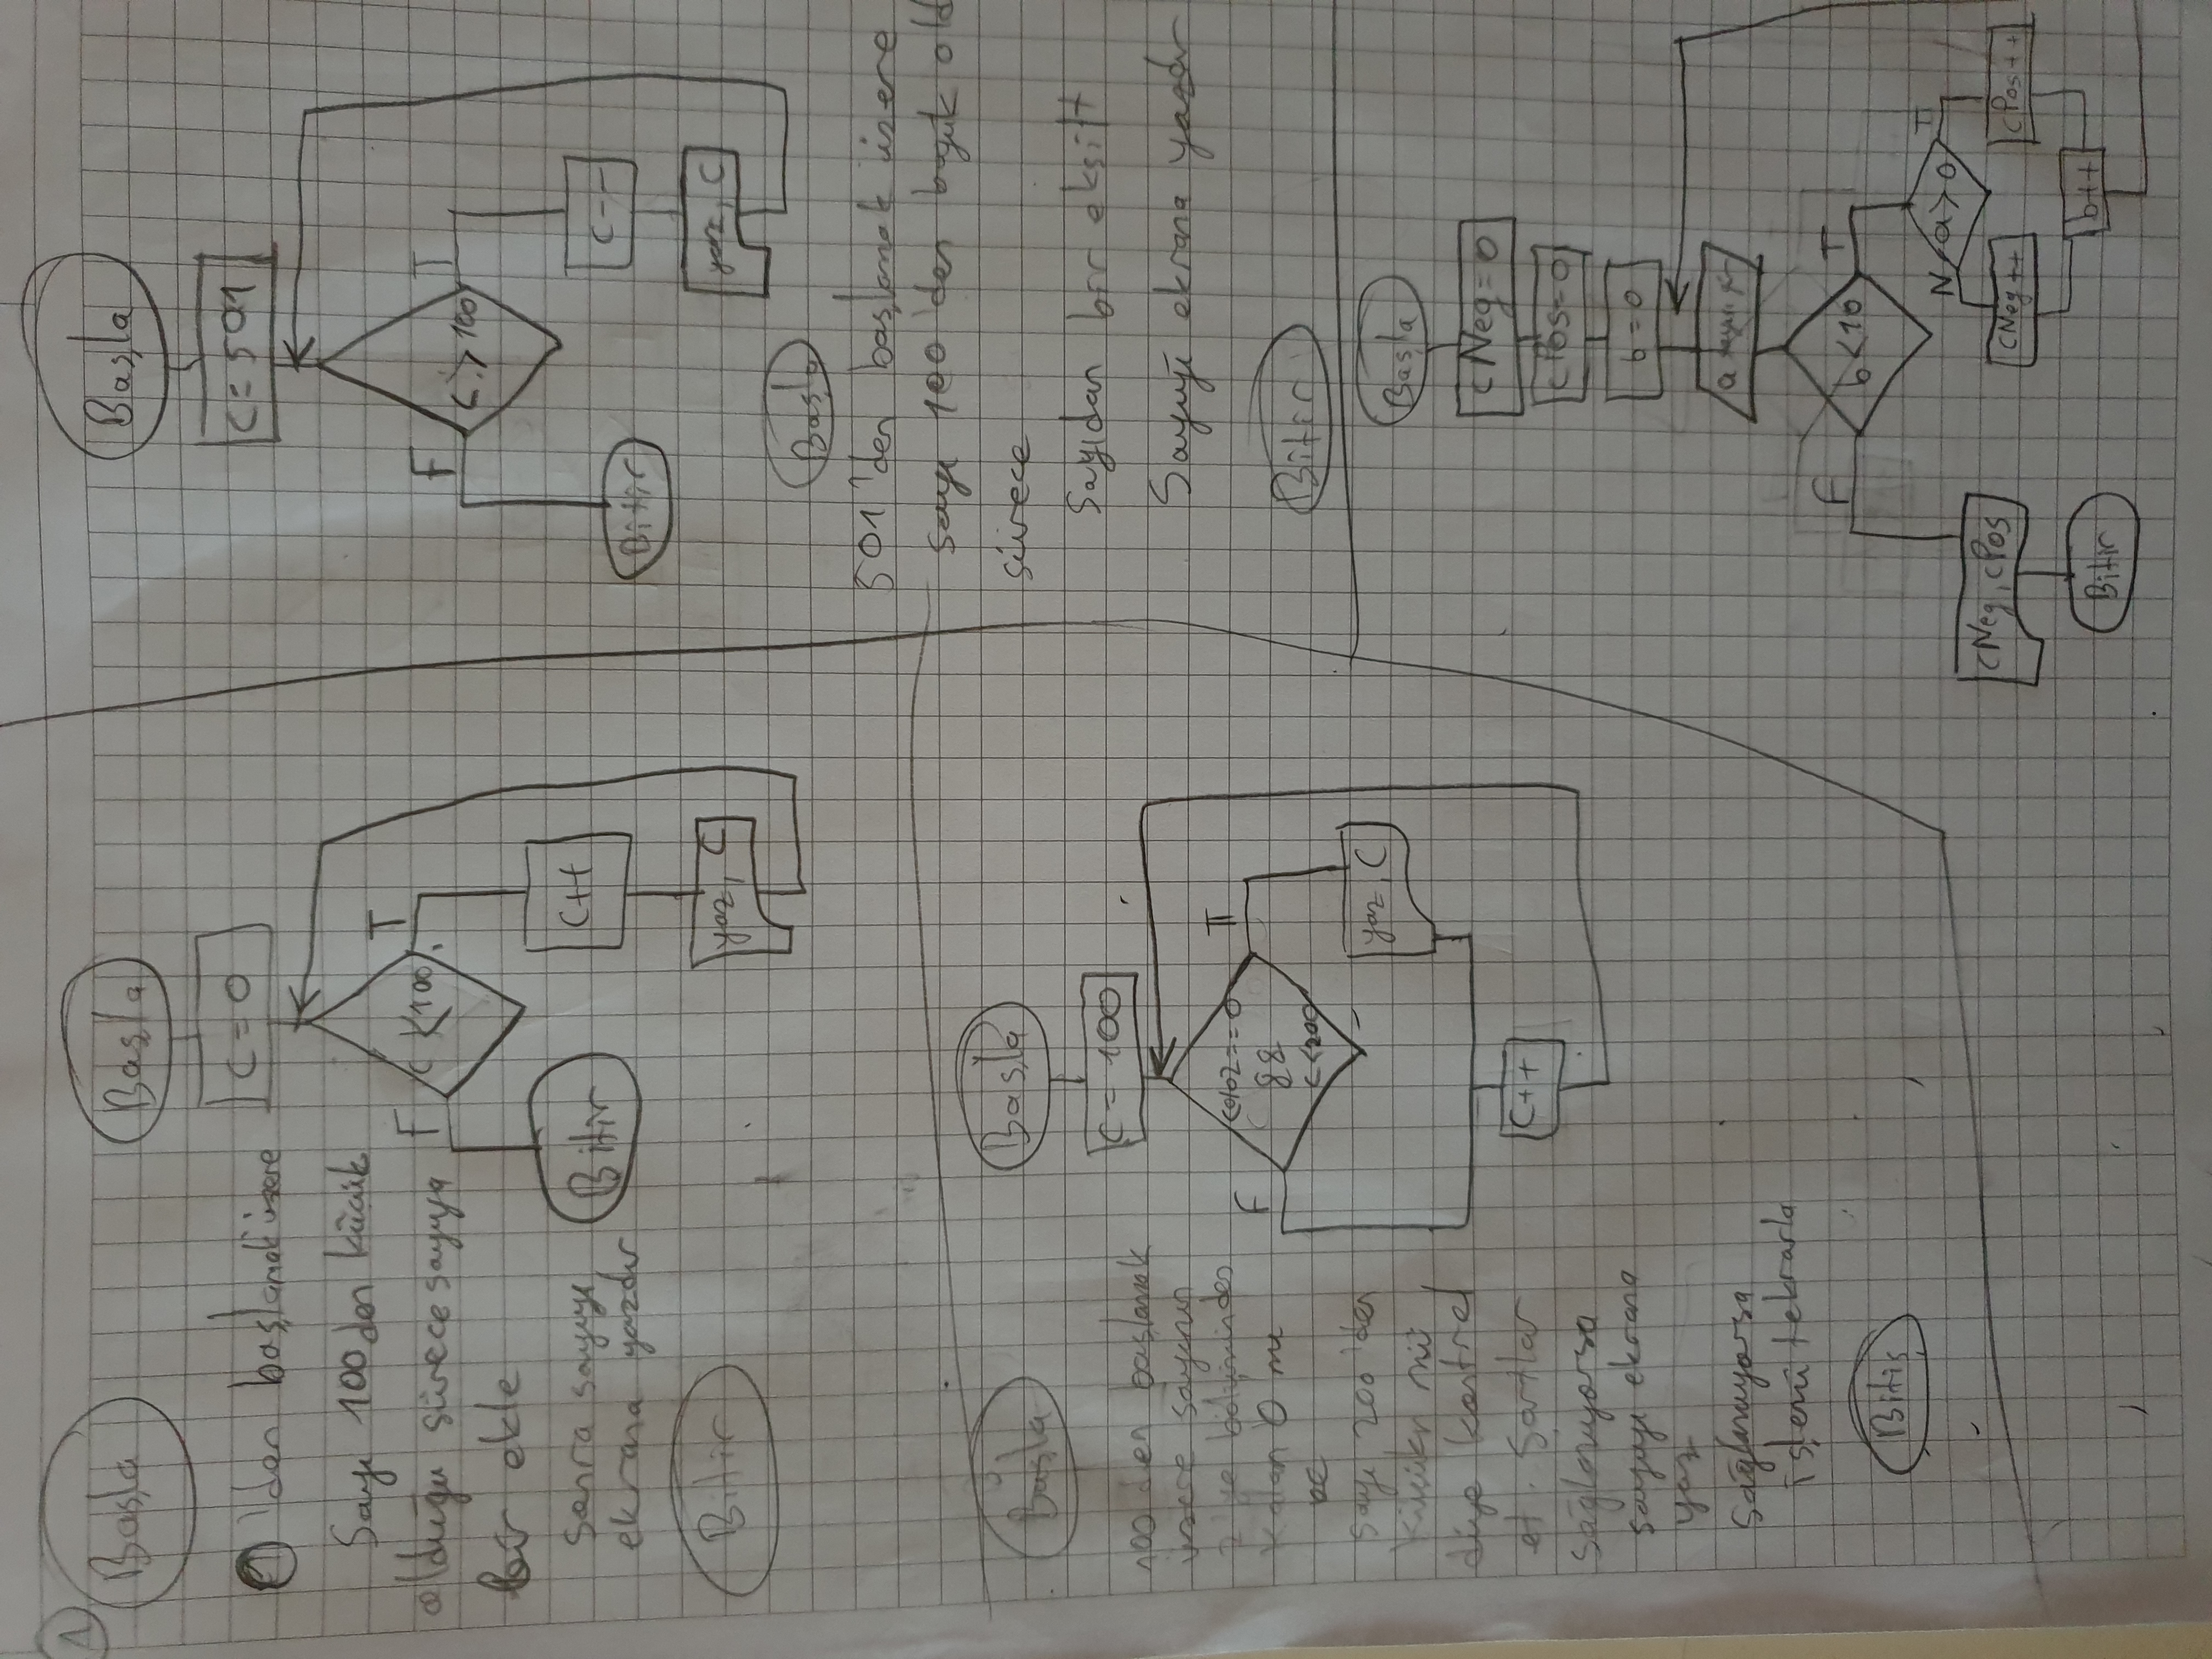 1
Başla
1'den başlamak üzere
Sayı 100 den küçük
olduğu sürece sayıya
bir ekle
Sonra sayıyı
ekrana yazdır
Bitir
Başla
C = 0
C < 100
F
T
Bitir
C++
yaz, C
Başla
C = 501
C > 100
F
T
Bitir
C--
yaz, C
Başla
501'den başlamak üzere
Sayı 100'den büyük old
sürece
Sayıdan bir eksilt
Sayıyı ekrana yazdır
Bitir
3
Başla
100'den başlamak
üzere sayının
2'ye bölümünden
Kalan 0 mı
ve
Sayı 200'den
Küçük mü
diye kontrol
et. Şartlar
sağlanıyorsa
sayıyı ekrana
yaz
Sağlanıyorsa
işlemi tekrarla
Bitiş
Başla
C = 100
C%2==0
&&
C<200
F
T
yaz, C
C++
Başla
cNeg=0
cPos=0
b=0
a sayısı gir
b<10
F
T
a>0
N
T
cNeg, cPos
cNeg++
cPos++
b++
Bitir